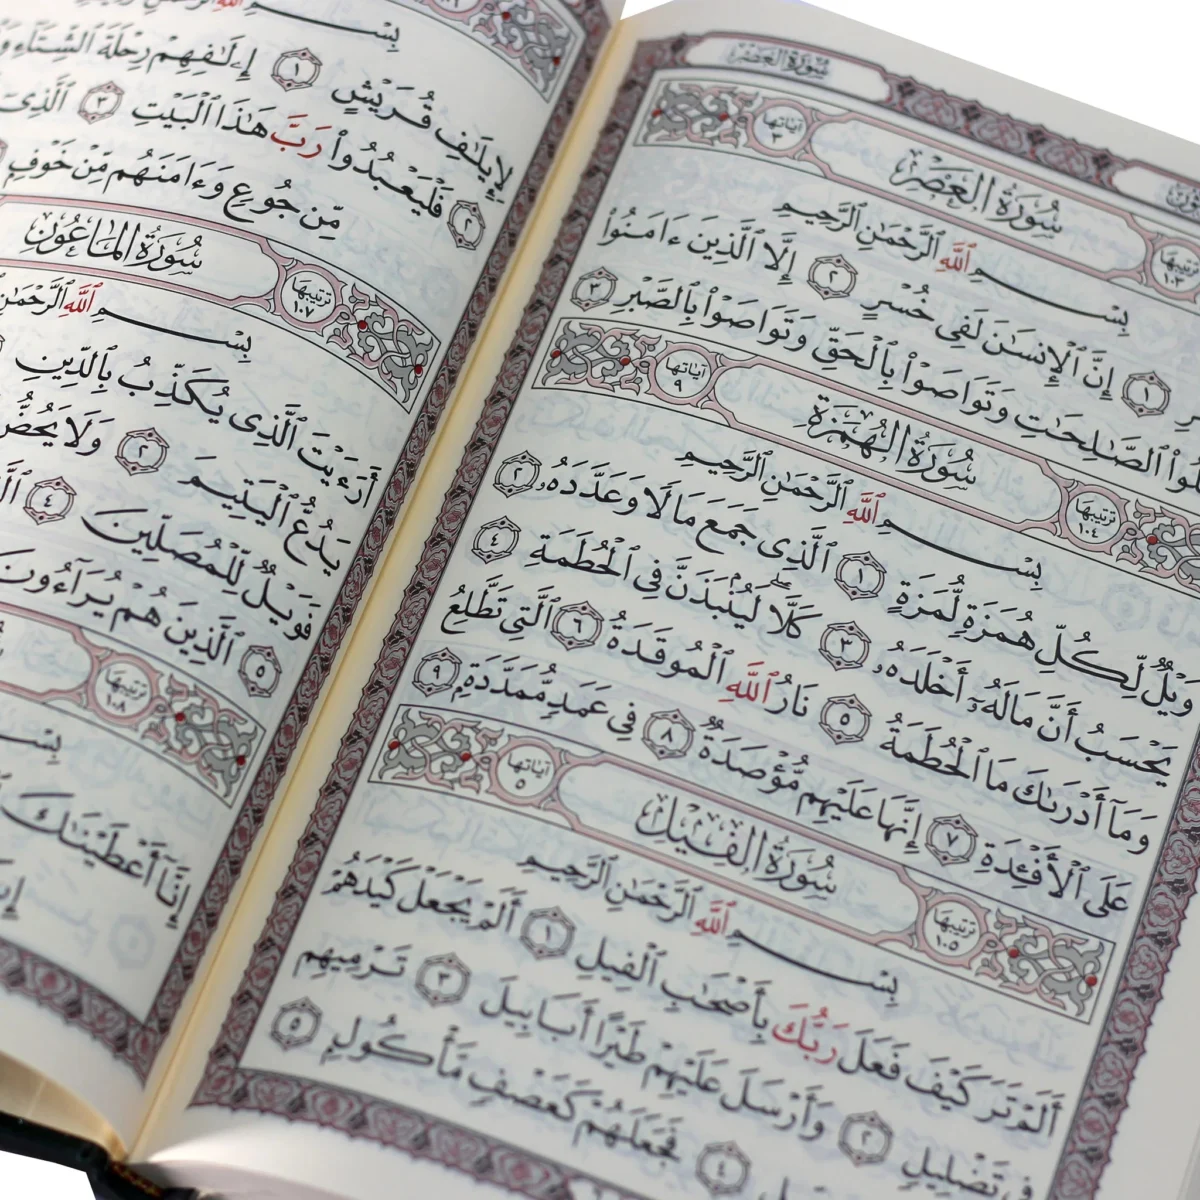 سُورَةُ العَصْرِ
آيَاتُهَا ٣
سُورَةُ العَصْرِ
تَرْتِيبُهَا ١٠٣
بِسْمِ ٱللَّهِ ٱلرَّحْمَٰنِ ٱلرَّحِيمِ
١ إِنَّ ٱلْإِنسَٰنَ لَفِى خُسْرٍ ٢ إِلَّا ٱلَّذِينَ ءَامَنُوا۟
ٱلصَّٰلِحَٰتِ وَتَوَاصَوْا۟ بِٱلْحَقِّ وَتَوَاصَوْا۟ بِٱلصَّبْرِ ٣
آيَاتُهَا ٩
سُورَةُ الهُمَزَةِ
تَرْتِيبُهَا ١٠٤
بِسْمِ ٱللَّهِ ٱلرَّحْمَٰنِ ٱلرَّحِيمِ
وَيْلٌ لِّكُلِّ هُمَزَةٍ لُّمَزَةٍ ١ ٱلَّذِى جَمَعَ مَالًا وَعَدَّدَهُۥ ٢
يَحْسَبُ أَنَّ مَالَهُۥٓ أَخْلَدَهُۥ ٣ كَلَّا ۖ لَيُنۢبَذَنَّ فِى ٱلْحُطَمَةِ ٤
وَمَآ أَدْرَىٰكَ مَا ٱلْحُطَمَةُ ٥ نَارُ ٱللَّهِ ٱلْمُوقَدَةُ ٦ ٱلَّتِى تَطَّلِعُ
عَلَى ٱلْأَفْـِٔدَةِ ٧ إِنَّهَا عَلَيْهِم مُّؤْصَدَةٌ ٨ فِى عَمَدٍ مُّمَدَّدَةٍۭ ٩
آيَاتُهَا ٥
سُورَةُ الفِيلِ
تَرْتِيبُهَا ١٠٥
بِسْمِ ٱللَّهِ ٱلرَّحْمَٰنِ ٱلرَّحِيمِ
أَلَمْ تَرَ كَيْفَ فَعَلَ رَبُّكَ بِأَصْحَٰبِ ٱلْفِيلِ ١ أَلَمْ يَجْعَلْ كَيْدَهُمْ
فِى تَضْلِيلٍ ٢ وَأَرْسَلَ عَلَيْهِمْ طَيْرًا أَبَابِيلَ ٣ تَرْمِيهِم
٤ فَجَعَلَهُمْ كَعَصْفٍ مَّأْكُولٍۭ ٥
بِسْمِ ٱللَّهِ
لِإِيلَٰفِ قُرَيْشٍ ١ إِۦلَٰفِهِمْ رِحْلَةَ ٱلشِّتَآءِ
٢ فَلْيَعْبُدُوا۟ رَبَّ هَٰذَا ٱلْبَيْتِ ٣ ٱلَّذِىٓ
مِّن جُوعٍ وَءَامَنَهُم مِّنْ خَوْفٍۭ
سُورَةُ المَاعُونِ
تَرْتِيبُهَا ١٠٧
بِسْمِ ٱللَّهِ
أَرَءَيْتَ ٱلَّذِى يُكَذِّبُ بِٱلدِّينِ
يَدُعُّ ٱلْيَتِيمَ ٢ وَلَا يَحُضُّ
فَوَيْلٌ لِّلْمُصَلِّينَ ٤
٥ ٱلَّذِينَ هُمْ يُرَآءُونَ
تَرْتِيبُهَا ١٠٨
بِسْمِ
إِنَّآ أَعْطَيْنَٰكَ